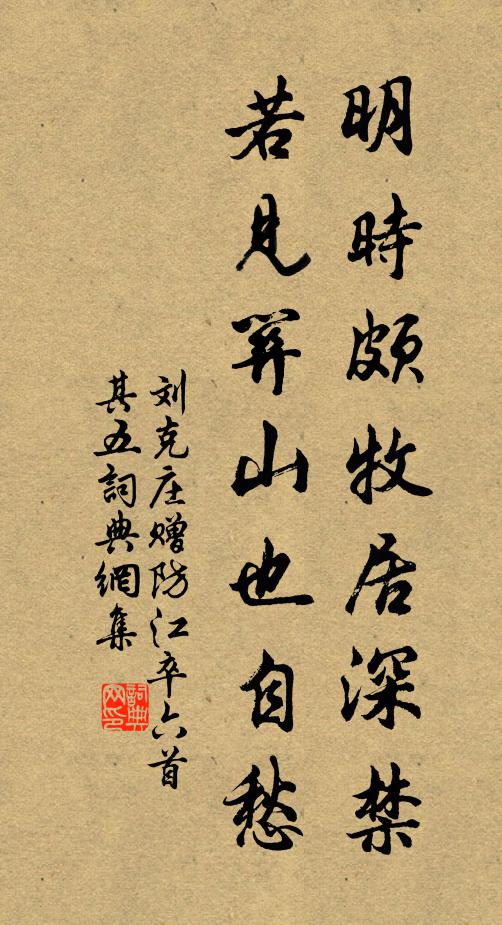 明時頗牧居深禁
若見關山也自愁
刘克庄赠防江卒六首
其五詞典網集
詞典網印